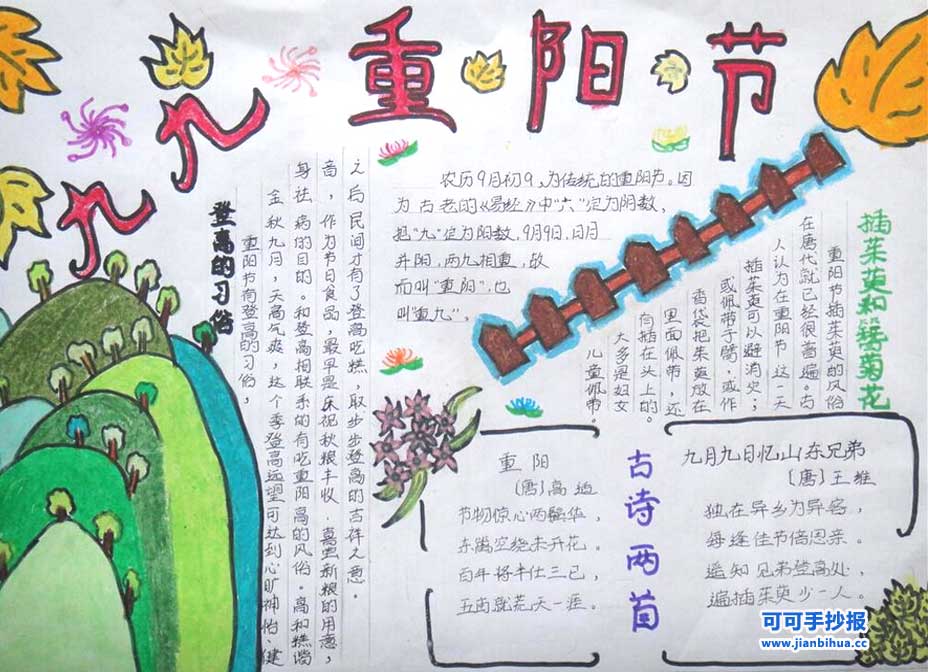 九九重阳节
登高的习俗
重阳节有登高的习俗，
金秋九月，天高气爽，这个季登高远望可达到心旷神怡、健
身祛病的目的。和登高相联系的有吃重阳高的风俗。高和糕谐
音，作为节日食品，最早是庆祝秋粮丰收、喜尝新粮的用意，
之后民间才有了登高吃糕，取步步登高的吉祥之意。
农历9月初9，为传统的重阳节。因
为古老的《易经》中“六”定为阴数，
把“九”定为阳数，9月9日，日月
并阳，两九相重，故
而叫“重阳”，也
叫“重九”，
插茱萸和簪菊花
重阳节插茱萸的风俗
在唐代就已经很普遍。古
人认为在重阳节这一天
插茱萸可以避消灾；
或佩带于臂，或作
香袋把茱萸放在
里面佩带，还
有插在头上的。
大多是妇女
儿童佩带。
古诗两首
重阳
（唐）高适
节物惊心两鬓华，
东篱空绕未开花。
百年将半仕三已，
五亩就荒天一涯。
九月九日忆山东兄弟
（唐）王维
独在异乡为异客，
每逢佳节倍思亲。
遥知兄弟登高处，
遍插茱萸少一人。
可可手抄报
www.jianbihua.cc